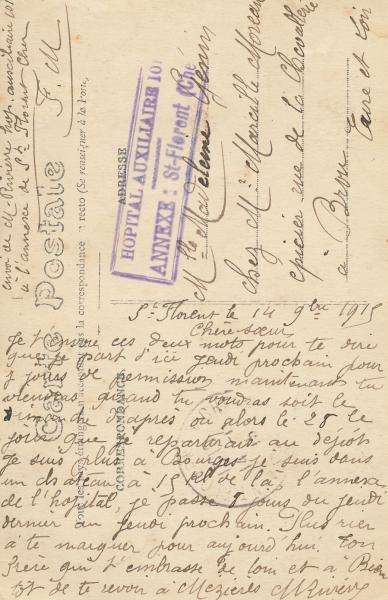 envoi de M Rivière hop. auxiliaire 101
à l'annexe de St Florent Cher
F. M
Carte Postale
Tous les pays étrangers n'acceptent pas la correspondance au recto (Se renseigner à la Poste)
CORRESPONDANCE
ADRESSE
HOPITAL AUXILIAIRE 101
ANNEXE : St-Florent (Cher
Mlle Madeleine
chez Mr Marcille Moreau
épicier rue de la Chevalerie
à Bléré
Indre et Loire
St Florent le 14 9bre 1915
Chère sœur
Je t'envoie ces deux mots pour te dire
que je part d'ici jeudi prochain pour
7 jours de permission maintenant tu
viendras quand tu voudras soit le
dimanche d'après ou alors le 25 le
jour que je repartirait au depot
Je suis plus à Bourges je suis dans
un chateau à 15 Kil de là, à l'annexe
de l'hopital, je passe 8 jours du jeudi
dernier au jeudi prochain. Plus rien
à te marquer pour aujourd'hui. Ton
frère qui t'embrasse de loin et à Bien
tot de te revoir à Mezières M Rivière